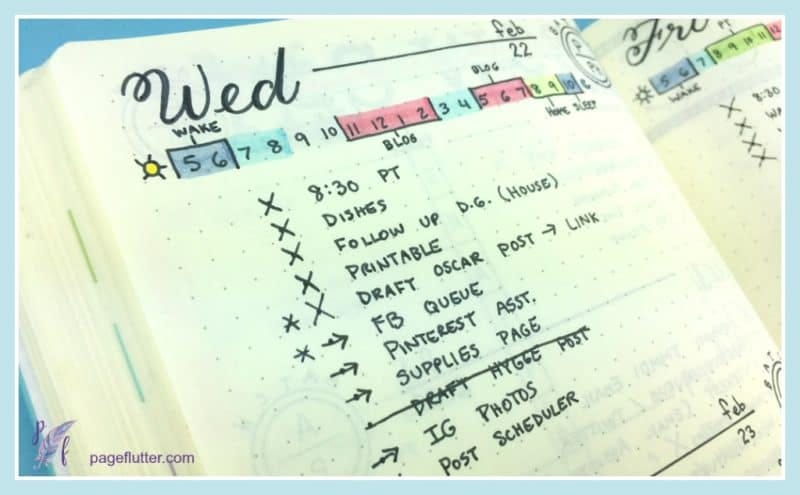 Wed
feb
22
BLOG
WAKE
5 6 7 8 9 10 11 12 1 2 3 4 5 6 7 8 9 10
BLOG
HOME SLEEP
X 8:30 PT
X DISHES
X FOLLOW UP D.G. (HOUSE)
X PRINTABLE
* X DRAFT OSCAR POST → LINK
* → FB QUEUE
→ PINTEREST ASST.
→ SUPPLIES PAGE
DRAFT HYGGE POST
→ IG PHOTOS
POST SCHEDULER
feb
23
Fri
PT
5 6 7 8 9 10 11 12
WAKE
X 8:30
X
X
X
P f
pageflutter.com